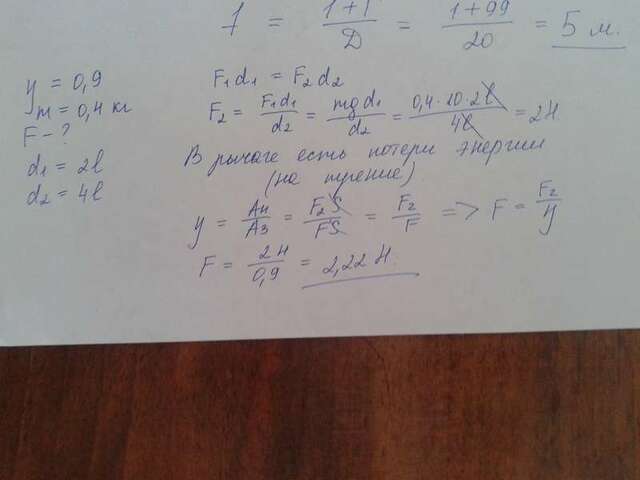 f = 1+Г / D = 1+99 / 20 = 5 м.
y = 0,9
m = 0,4 кг
F - ?
d1 = 2l
d2 = 4l
F1d1 = F2d2
F2 = F1d1 / d2 = mgd1 / d2 = 0,4·10·2l / 4l = 2Н
В рычаге есть потери энергии
(на трение)
y = Aп / Aз = F2S / FS = F2 / F => F = F2 / y
F = 2Н / 0,9 = 2,22 Н.